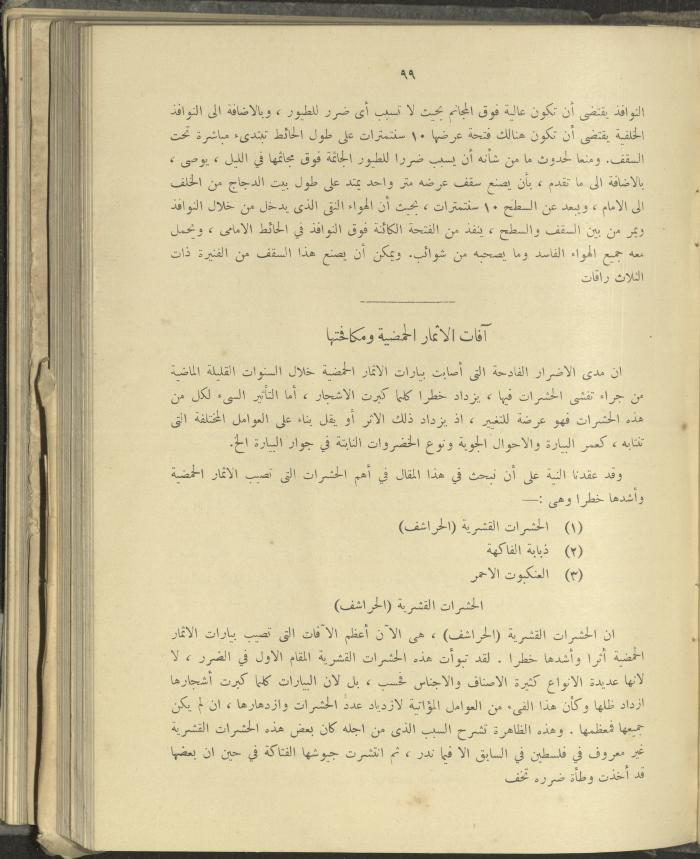 ٩٩
النوافذ يقتضى أن تكون عالية فوق المجاثم بحيث لا تسبب أى ضرر للطيور ، وبالاضافة الى النوافذ
الخلفية يقتضى أن تكون هنالك فتحة عرضها ١٠ سنتمترات على طول الحائط تبتدىء مباشرة تحت
السقف. ومنعا لحدوث ما من شأنه أن يسبب ضررا للطيور الجاثمة فوق مجاثمها في الليل ، يوصى ،
بالاضافة الى ما تقدم ، بأن يصنع سقف عرضه متر واحد يمتد على طول بيت الدجاج من الخلف
الى الامام ، ويبعد عن السطح ١٠ سنتمترات ، بحيث أن الهواء النقى الذى يدخل من خلال النوافذ
ويمر من بين السقف والسطح ، ينفذ من الفتحة الكائنة فوق النوافذ في الحائط الامامى ، ويحمل
معه جميع الهواء الفاسد وما يصحبه من شوائب. ويمكن أن يصنع هذا السقف من الفنيرة ذات
الثلاث راقات
آفات الاثمار الحمضية ومكافحتها
ان مدى الاضرار الفادحة التى أصابت بيارات الاثمار الحمضية خلال السنوات القليلة الماضية
من جراء تفشى الحشرات فيها ، يزداد خطرا كلما كبرت الاشجار ، أما التأثير السىء لكل من
هذه الحشرات فهو عرضة للتغيير ، اذ يزداد ذلك الاثر أو يقل بناء على العوامل المختلفة التى
تنتابه ، كعمر البيارة والاحوال الجوية ونوع الخضروات النابتة في جوار البيارة الخ.
وقد عقدنا النية على أن نبحث في هذا المقال في أهم الحشرات التى تصيب الاثمار الحمضية
وأشدها خطرا وهى :—
(١) الحشرات القشرية (الحراشف)
(٢) ذبابة الفاكهة
(٣) العنكبوت الاحمر
الحشرات القشرية (الحراشف)
ان الحشرات القشرية (الحراشف) ، هى الآن أعظم الآفات التى تصيب بيارات الاثمار
الحمضية أثرا وأشدها خطرا . لقد تبوأت هذه الحشرات القشرية المقام الاول في الضرر ، لا
لانها عديدة الانواع كثيرة الاصناف والاجناس فحسب ، بل لان البيارات كلما كبرت أشجارها
ازداد ظلها وكأن هذا الفىء من العوامل المؤاتية لازدياد عدد الحشرات وازدهارها ، ان لم يكن
جميعها فمعظمها . وهذه الظاهرة تشرح السبب الذى من اجله كان بعض هذه الحشرات القشرية
غير معروف في فلسطين في السابق الا فيما ندر ، ثم انتشرت جيوشها الفتاكة في حين ان بعضها
قد أخذت وطأة ضرره تخف